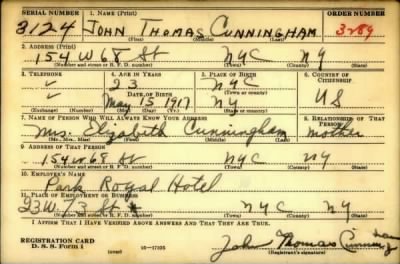 SERIAL NUMBER 1. NAME (Print) ORDER NUMBER
3124 JOHN THOMAS CUNNINGHAM 3289
(First) (Middle) (Last)
2. ADDRESS (Print)
154 W 68 St NYC NY
(Number and street or R. F. D. number) (Town) (County) (State)
3. TELEPHONE 4. AGE IN YEARS 5. PLACE OF BIRTH 6. COUNTRY OF CITIZENSHIP
✓ 23 NYC
DATE OF BIRTH (Town or county)
✓ May 15 1917 NY US
(Exchange) (Number) (Mo.) (Day) (Yr.) (State or country)
7. NAME OF PERSON WHO WILL ALWAYS KNOW YOUR ADDRESS 8. RELATIONSHIP OF THAT PERSON
Mrs. Elizabeth Cunningham mother
(Mr., Mrs., Miss) (First) (Middle) (Last)
9. ADDRESS OF THAT PERSON
154 W 68 St NYC NY
(Number and street or R. F. D. number) (Town) (County) (State)
10. EMPLOYER'S NAME
Park Royal Hotel
11. PLACE OF EMPLOYMENT OR BUSINESS
23 W. 73 St NYC NY
(Number and street or R. F. D. number) (Town) (County) (State)
I AFFIRM THAT I HAVE VERIFIED ABOVE ANSWERS AND THAT THEY ARE TRUE.
REGISTRATION CARD
D. S. S. FORM 1 (over) 16—17105 John Thomas Cunningham
(Registrant's signature)